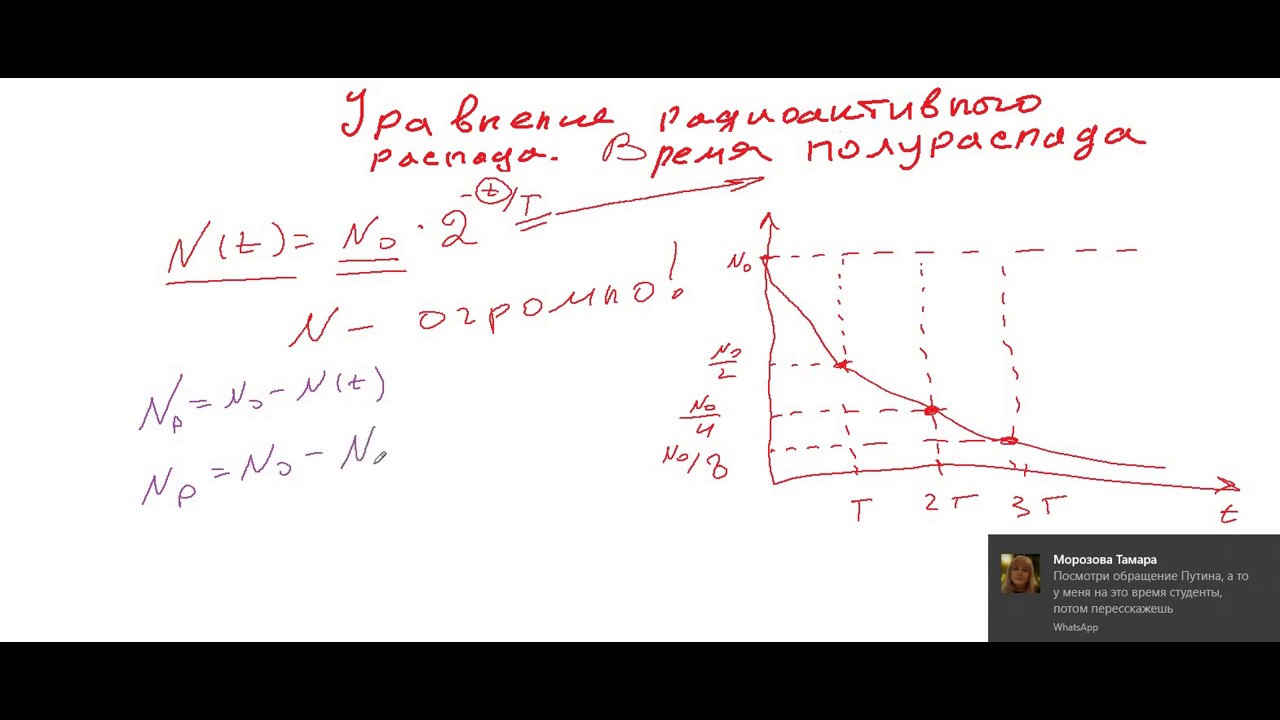 Уравнение радиоактивного
распада. Время полураспада
N(t) = N₀ · 2^(-t/T)
N – огромно!
Nр = N₀ – N(t)
Nр = N₀ – N₀
N₀
N₀/2
N₀/4
N₀/8
T 2T 3T
t
Морозова Тамара
Посмотри обращение Путина, а то
у меня на это время студенты,
потом пересскажешь
WhatsApp